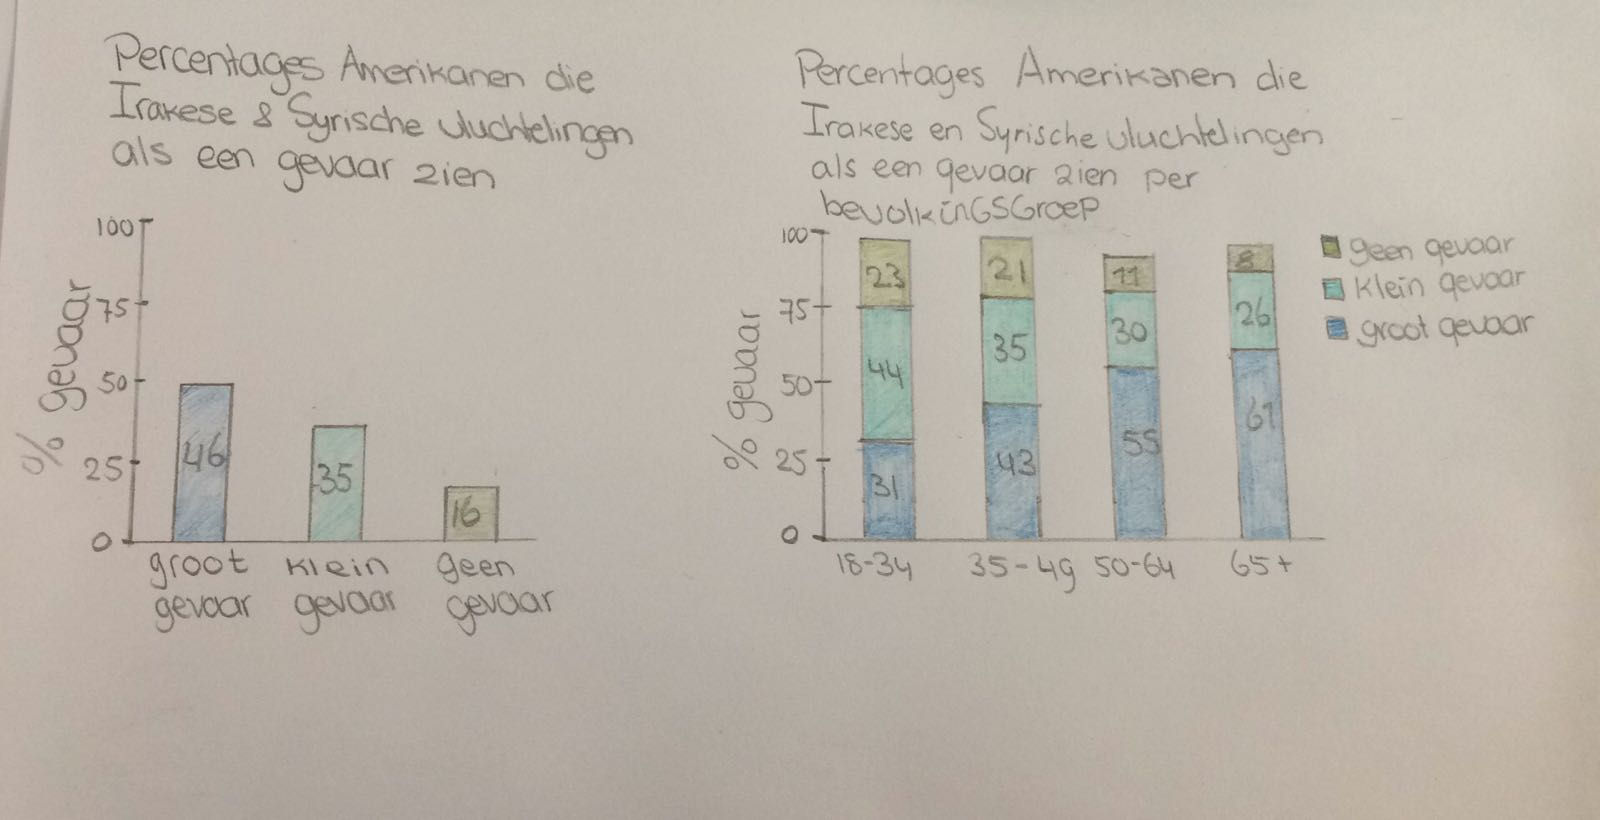 Percentages Amerikanen die
Irakese & Syrische vluchtelingen
als een gevaar zien
% gevaar
100
75
50
25
0
46
35
16
groot gevaar
klein gevaar
geen gevaar
Percentages Amerikanen die
Irakese en Syrische vluchtelingen
als een gevaar zien per
bevolkinGSGroep
% gevaar
100
75
50
25
0
23
44
31
21
35
43
11
30
55
8
26
61
18-34
35-49
50-64
65+
geen gevaar
klein gevaar
groot gevaar